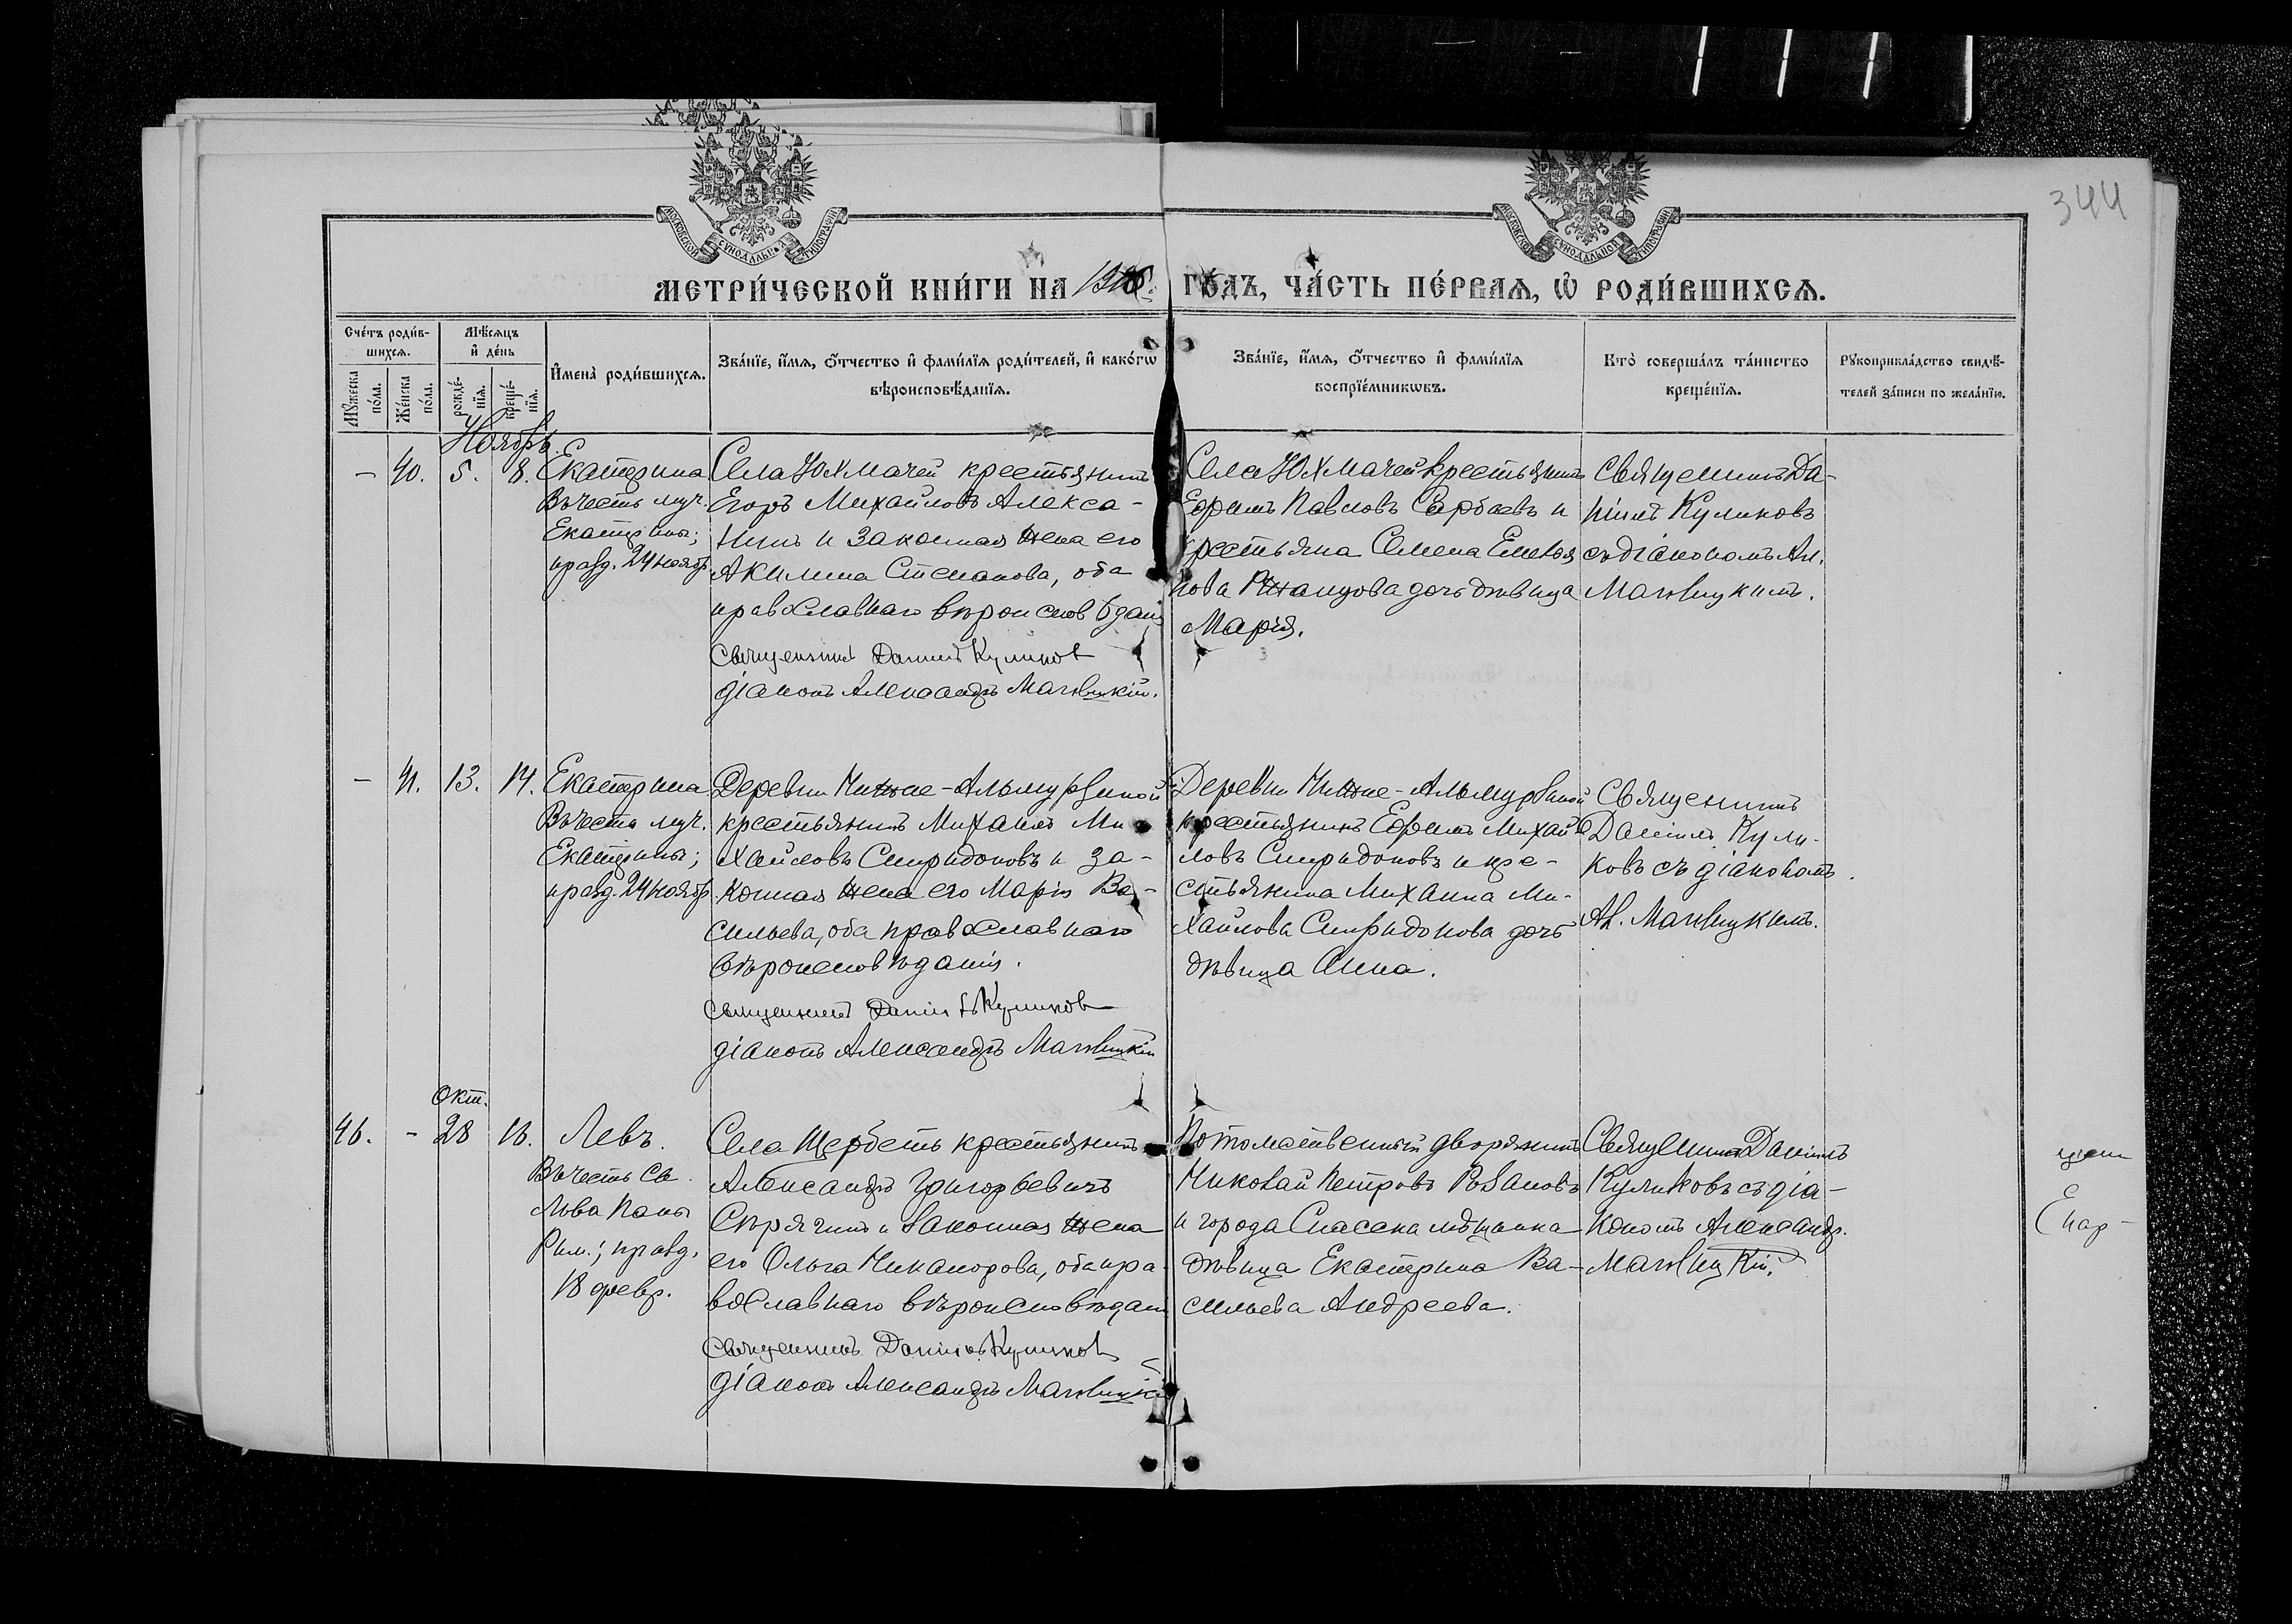 344
МОСКОВСКОЙ СѴНОДАЛЬНОЙ ТИПОГРАФІИ
МОСКОВСКОЙ СѴНОДАЛЬНОЙ ТИПОГРАФІИ
МЕТРИ́ЧЕСКОЙ КНИ́ГИ НА 1916. ГО́ДЪ, ЧА́СТЬ ПЕ́РВАѦ, Ѡ҆ РОДИ́ВШИХСѦ.
Сче́тъ роди́в-
шихсѧ.
Мꙋ́жеска по́ла.
Же́нска по́ла.
Мѣ́сѧцъ
и҆ де́нь
рожде́-
нїѧ.
креще́-
нїѧ.
И҆мена̀ роди́вшихсѧ.
Зва́нїе, и҆́мѧ, ѻ҆́тчество и҆ фами́лїѧ роди́телей, и҆ како́гѡ
вѣроисповѣ́данїѧ.
Зва́нїе, и҆́мѧ, ѻ҆́тчество и҆ фами́лїѧ
воспрїе́мникѡвъ.
Кто̀ соверша́лъ та́инство
креще́нїѧ.
Рꙋкоприкла́дство свидѣ́-
телей за́писи по жела́нїю.
Ноябрь.
– 40. 5. 8.
Екатерина
Въ честь муч.
Екатерины;
празд. 24 ноябр.
Села Юхмачей крестьянинъ
Егоръ Михайловъ Алекса-
нинъ и законная жена его
Акилина Степанова, оба
православнаго вѣроисповѣданія
Священникъ Даніилъ Куликовъ
діаконъ Александръ Магницкій.
Села Юхмачей крестьянинъ
Ефремъ Павловъ Сарбаевъ и
крестьяна Семена Емелья
нова Ржанцова дочь дѣвица
Марія.
Священникъ Да-
ніилъ Куликовъ
съ діакономъ Ал.
Магницкимъ.
– 41. 13. 14.
Екатерина
Въ честь муч.
Екатерины;
празд. 24 ноябр.
Деревни Нижне-Альмурзиной
крестьянинъ Михаилъ Ми-
хайловъ Спиридоновъ и за-
конная жена его Марія Ва-
сильева, оба православнаго
вѣроисповѣданія.
Священникъ Даніилъ Куликовъ
діаконъ Александръ Магницкій
Деревни Нижне-Альмурзиной
крестьянинъ Ефремъ Михай
ловъ Спиридоновъ и кре-
стьянина Михаила Ми-
хайлова Спиридонова дочь
дѣвица Анна.
Священникъ
Даніилъ Кули-
ковъ съ діакономъ
Ал. Магницкимъ.
Окт.
46. – 28 16.
Левъ.
Въ честь Св.
Льва Папы
Рим.; празд.
18 февр.
Села Щербеть крестьянинъ
Александръ Григорьевичъ
Спрягинъ и законная жена
его Ольга Никанорова, оба пра-
вославнаго вѣроисповѣдан
Священникъ Даніилъ Куликовъ
діаконъ Александръ Магницкій
Потомственный дворянинъ
Николай Петровъ Розановъ
и города Спасска мѣщанка
дѣвица Екатерина Ва-
сильева Андреева.
Священникъ Даніилъ
Куликовъ съ діа-
кономъ Александр.
Магницкій.